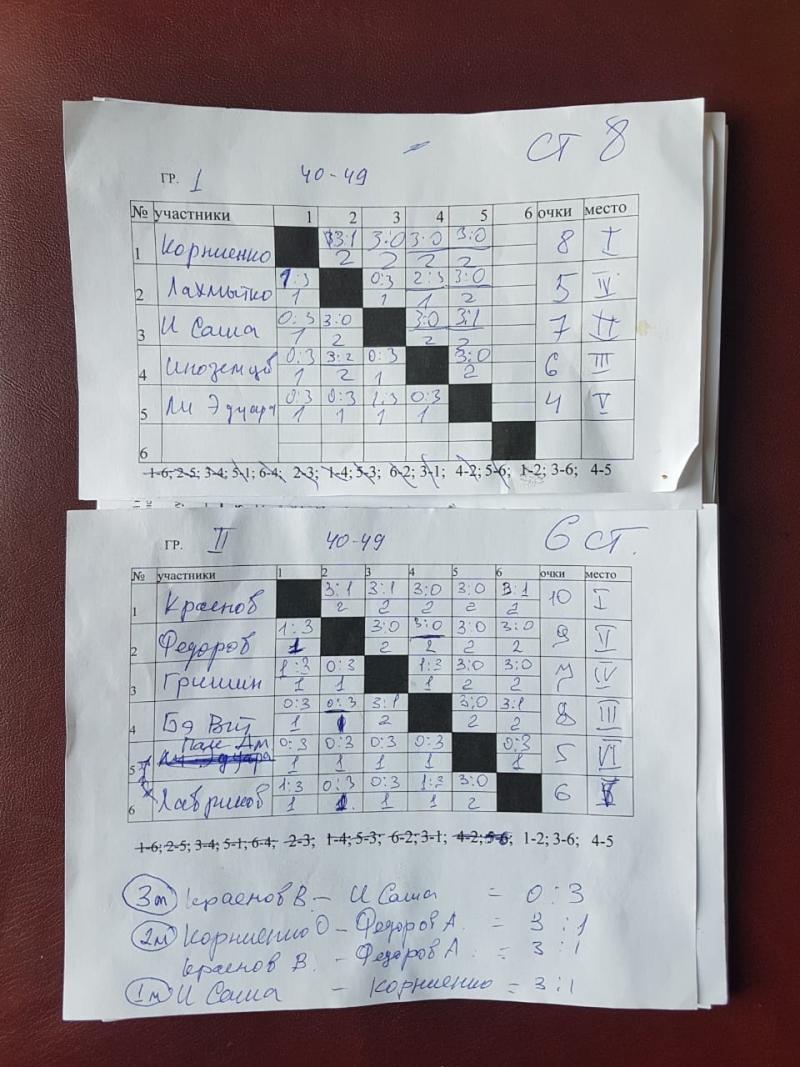 ст 8
ГР. 1 40-49
№ участники 1 2 3 4 5 6 очки место
1 Корниенко 3:1 3:0 3:0 3:0 8 I
2 2 2 2
2 Лахмытко 1:3 0:3 2:3 3:0 5 IV
1 1 1 2
3 И Саша 0:3 3:0 3:0 3:1 7 II
1 2 2 2
4 Иноземцев 0:3 3:2 0:3 3:0 6 III
1 2 1 2
5 Ли Эдуард 0:3 0:3 1:3 0:3 4 V
1 1 1 1
6
1-6; 2-5; 3-4; 5-1; 6-4; 2-3; 1-4; 5-3; 6-2; 3-1; 4-2; 5-6; 1-2; 3-6; 4-5
ГР. II 40-49 6 ст.
№ участники 1 2 3 4 5 6 очки место
1 Краснов 3:1 3:1 3:0 3:0 3:1 10 I
2 2 2 2 2
2 Федоров 1:3 3:0 3:0 3:0 3:0 9 II
1 2 2 2 2
3 Гришин 1:3 0:3 1:3 3:0 3:0 7 IV
1 1 1 2 2
4 0:3 0:3 3:1 3:0 3:1 8 III
1 1 2 2 2
5 Пак Дм 0:3 0:3 0:3 0:3 0:3 5 VI
1 1 1 1 1
6 Лавринов 1:3 0:3 0:3 1:3 3:0 6 V
1 1 1 1 2
1-6; 2-5; 3-4; 5-1; 6-4; 2-3; 1-4; 5-3; 6-2; 3-1; 4-2; 5-6; 1-2; 3-6; 4-5
3м Краснов В – И Саша = 0:3
2м Корниенко О – Федоров А. = 3:1
Краснов В. – Федоров А. = 3:1
1м И Саша – Корниенко = 3:1